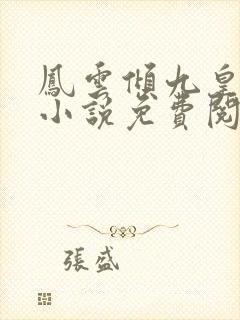 鳳雲傾九皇
小說免費閱
張盛